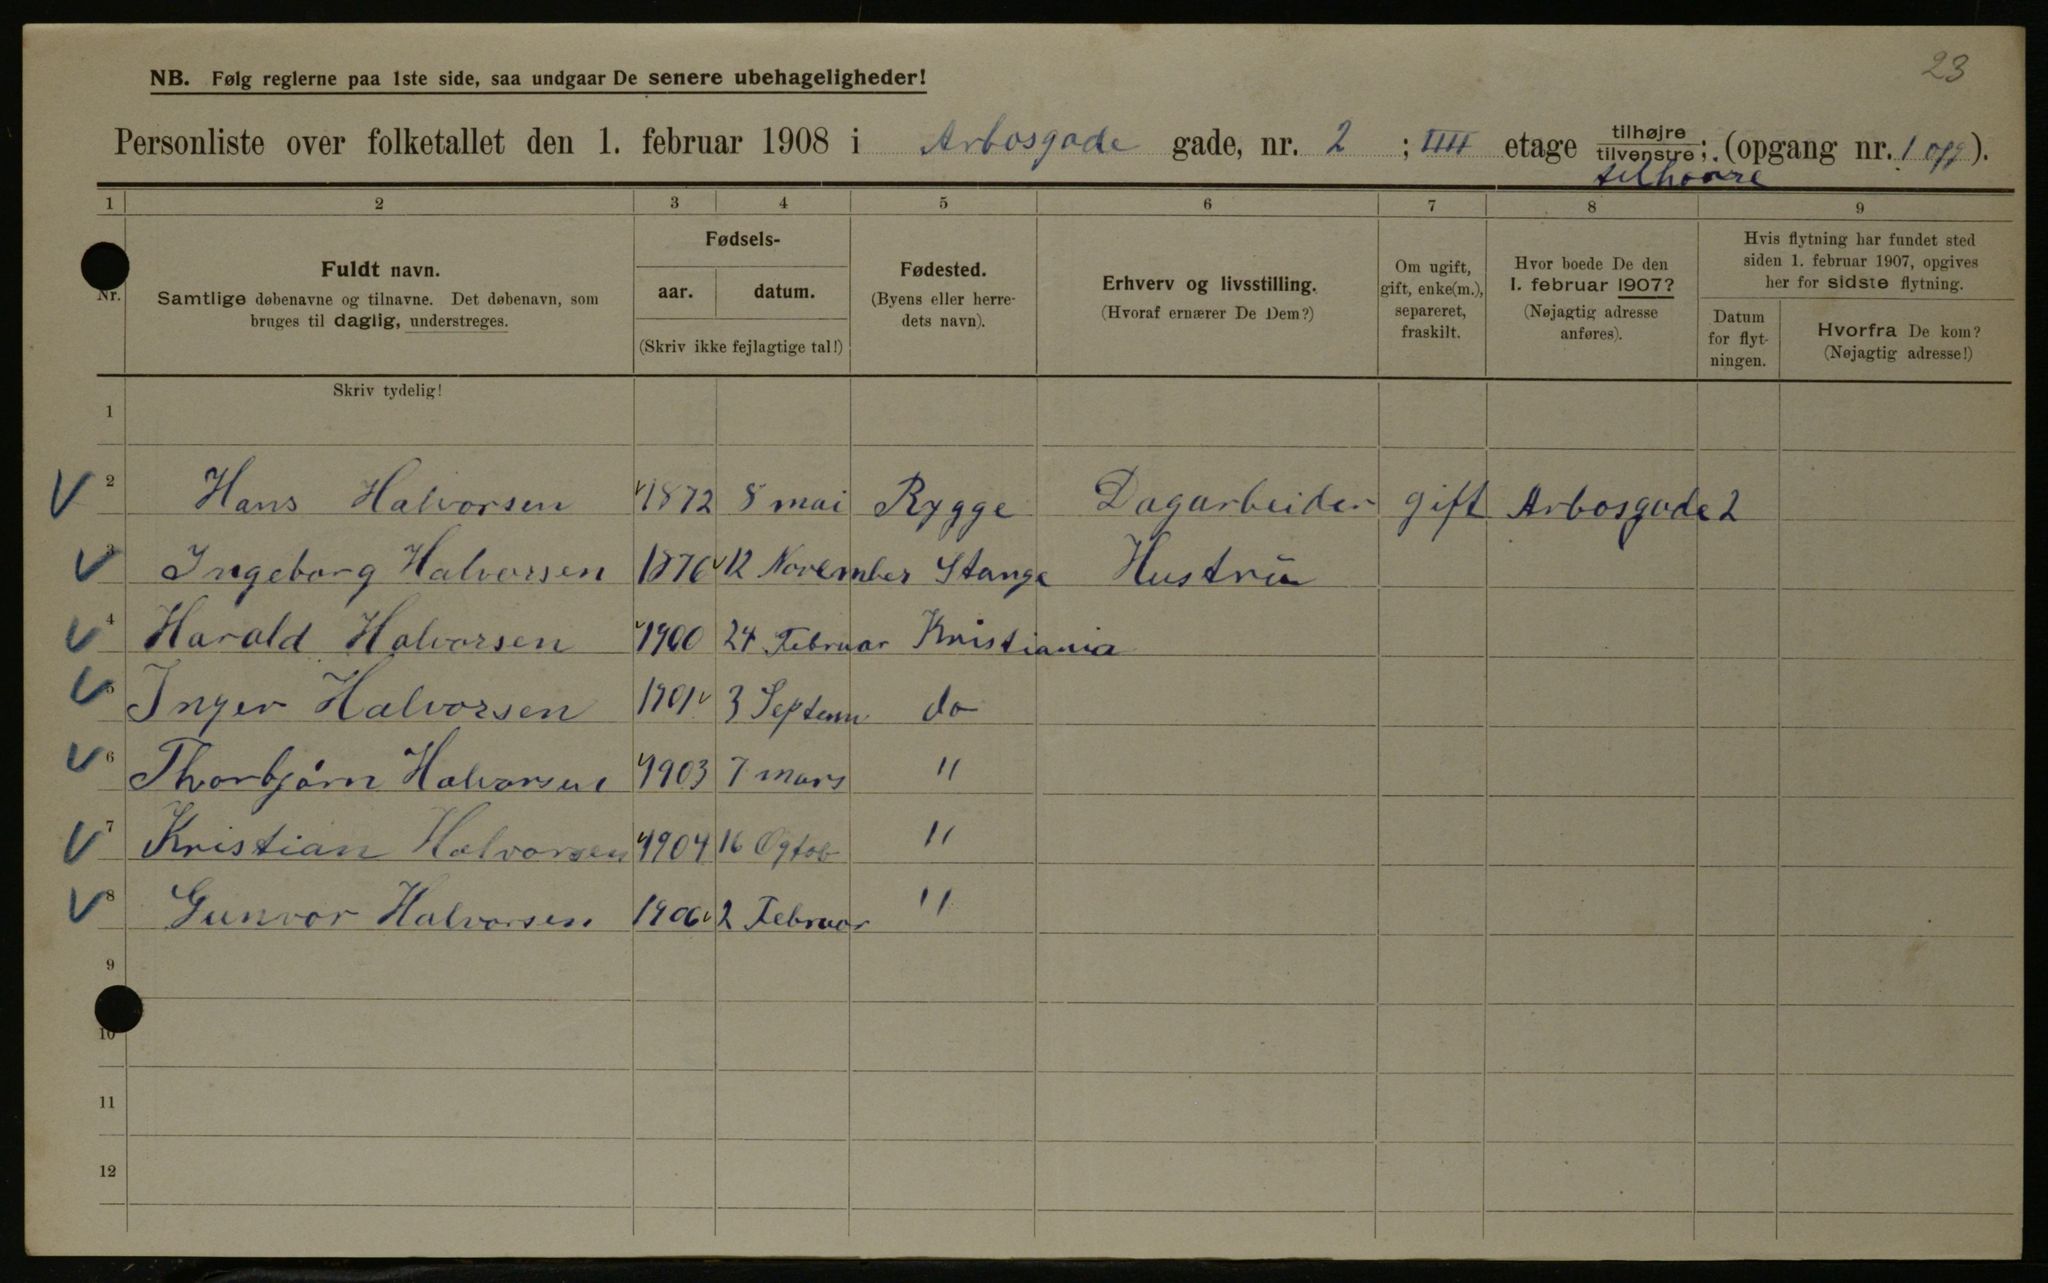 23
NB. Følg reglerne paa 1ste side, saa undgaar De senere ubehageligheder!
Personliste over folketallet den 1. februar 1908 i Arbosgade gade, nr. 2 ; IIII etage tilhøjre / tilvenstre; (opgang nr. 1 opg).
1 2 3 4 5 6 7 8 9
Nr.
Fuldt navn.
Samtlige døbenavne og tilnavne. Det døbenavn, som
bruges til daglig, understreges.
Fødsels-
aar. datum.
(Skriv ikke fejlagtige tal!)
Fødested.
(Byens eller herre-
dets navn).
Erhverv og livsstilling.
(Hvoraf ernærer De Dem?)
Om ugift,
gift, enke(m.),
separeret,
fraskilt.
Hvor boede De den
1. februar 1907?
(Nøjagtig adresse
anføres).
Hvis flytning har fundet sted
siden 1. februar 1907, opgives
her for sidste flytning.
Datum
for flyt-
ningen.
Hvorfra De kom?
(Nøjagtig adresse!)
Skriv tydelig!
1
2 Hans Halvorsen 1872 8 mai Rygge Dagarbeider gift Arbosgade 2
3 Ingeborg Halvorsen 1876 12 November Stange Hustru
4 Harald Halvorsen 1900 24 Februar Kristiania
5 Inger Halvorsen 1901 3 Septem do
6 Thorbjørn Halvorsen 1903 7 mars "
7 Kristian Halvorsen 1904 16 Ogtob "
8 Gunvor Halvorsen 1906 2 Februar "
9
10
11
12